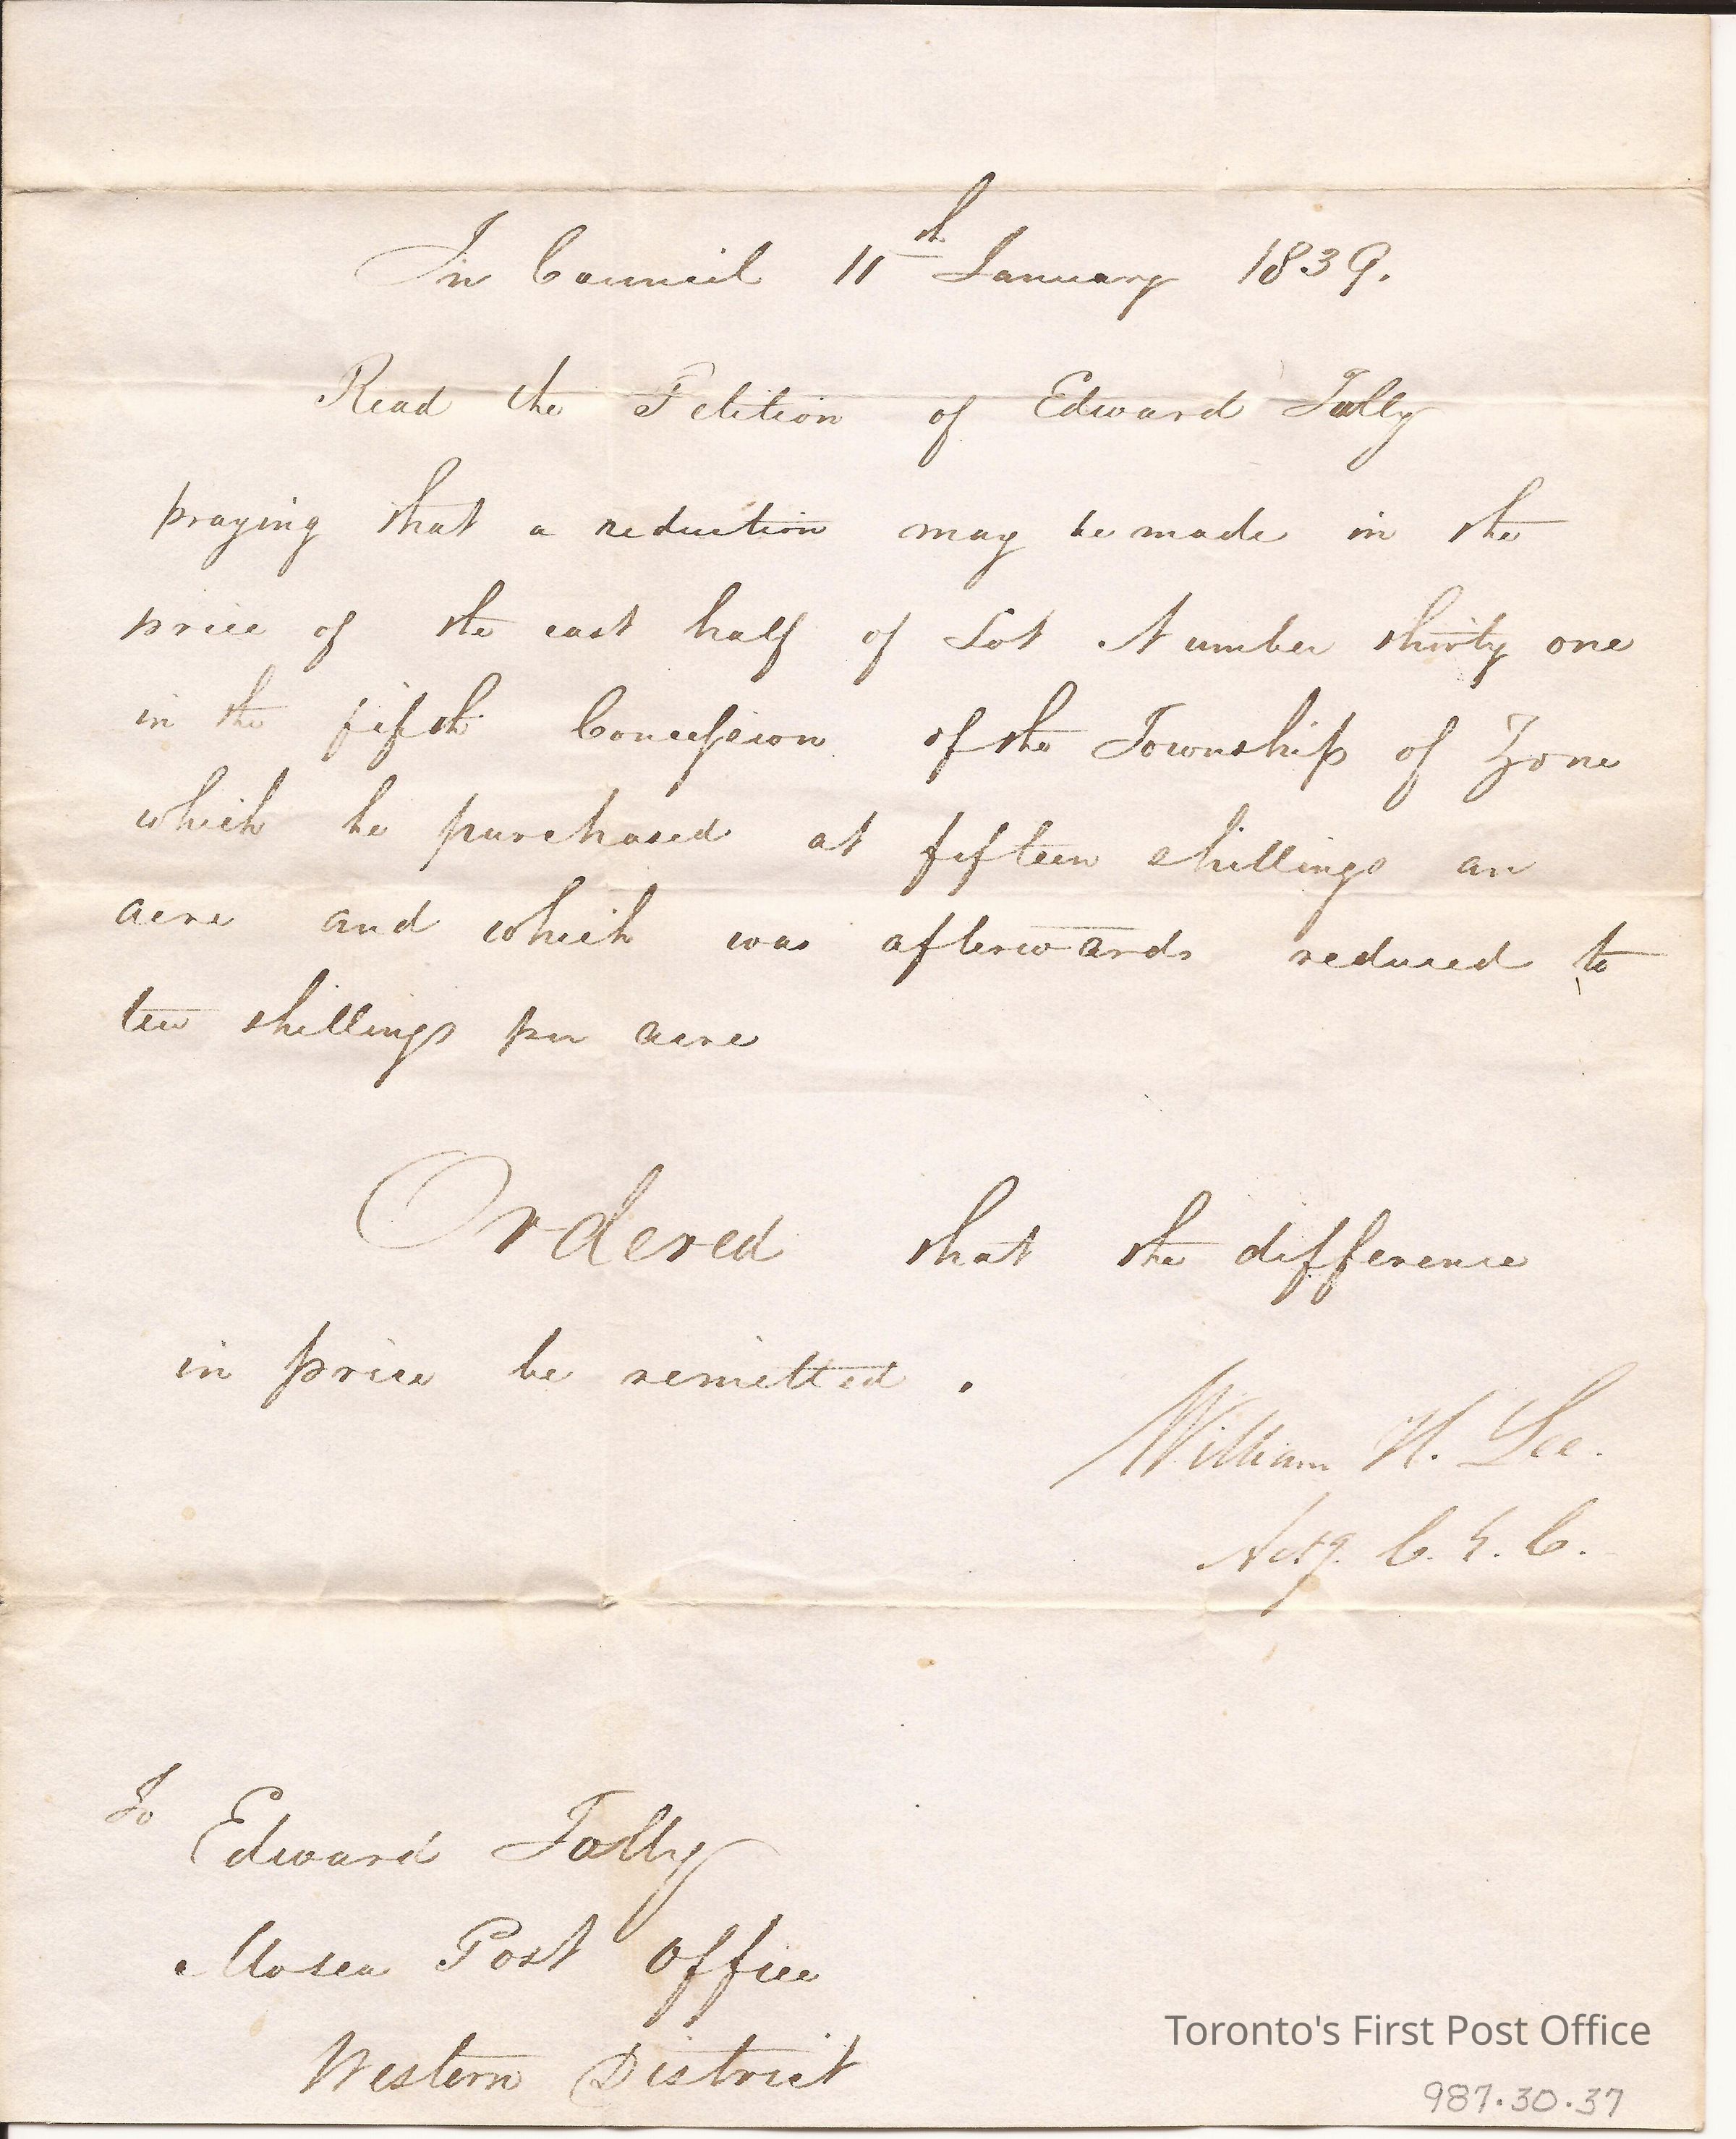 In Council 11th January 1839.
Read the Petition of Edward Tolly
praying that a reduction may be made in the
price of the east half of Lot Number thirty one
in the fifth Concession of the Township of Zone
which he purchased at fifteen shillings an
acre and which was afterwards reduced to
ten shillings per acre
Ordered that the difference
in price be remitted.
William H. Lee.
Actg. C. E. C.
To
Edward Tolly
Mosea Post Office
Western District
Toronto's First Post Office
987.30.37